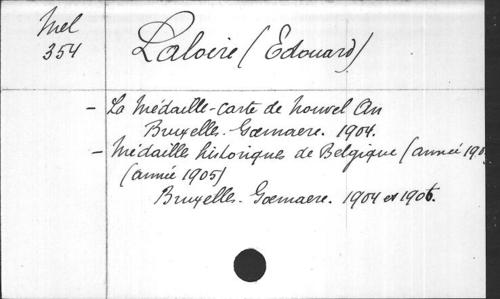 Mel
354
Laloire (Edouard)
- La Médaille-carte de Nouvel An
Bruxelles. Goemaere. 1904.
- Médailles historiques de Belgique (année 190
(année 1905)
Bruxelles. Goemaere. 1904 et 1906.